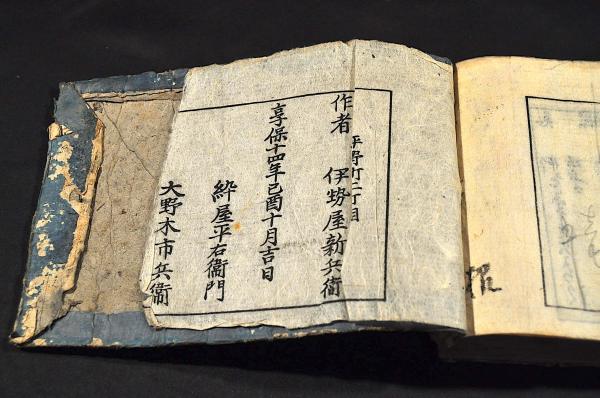 作者
平野町二丁目
伊勢屋新兵衛
享保十四年己酉十月吉日
絳屋平右衞門
大野木市兵衞